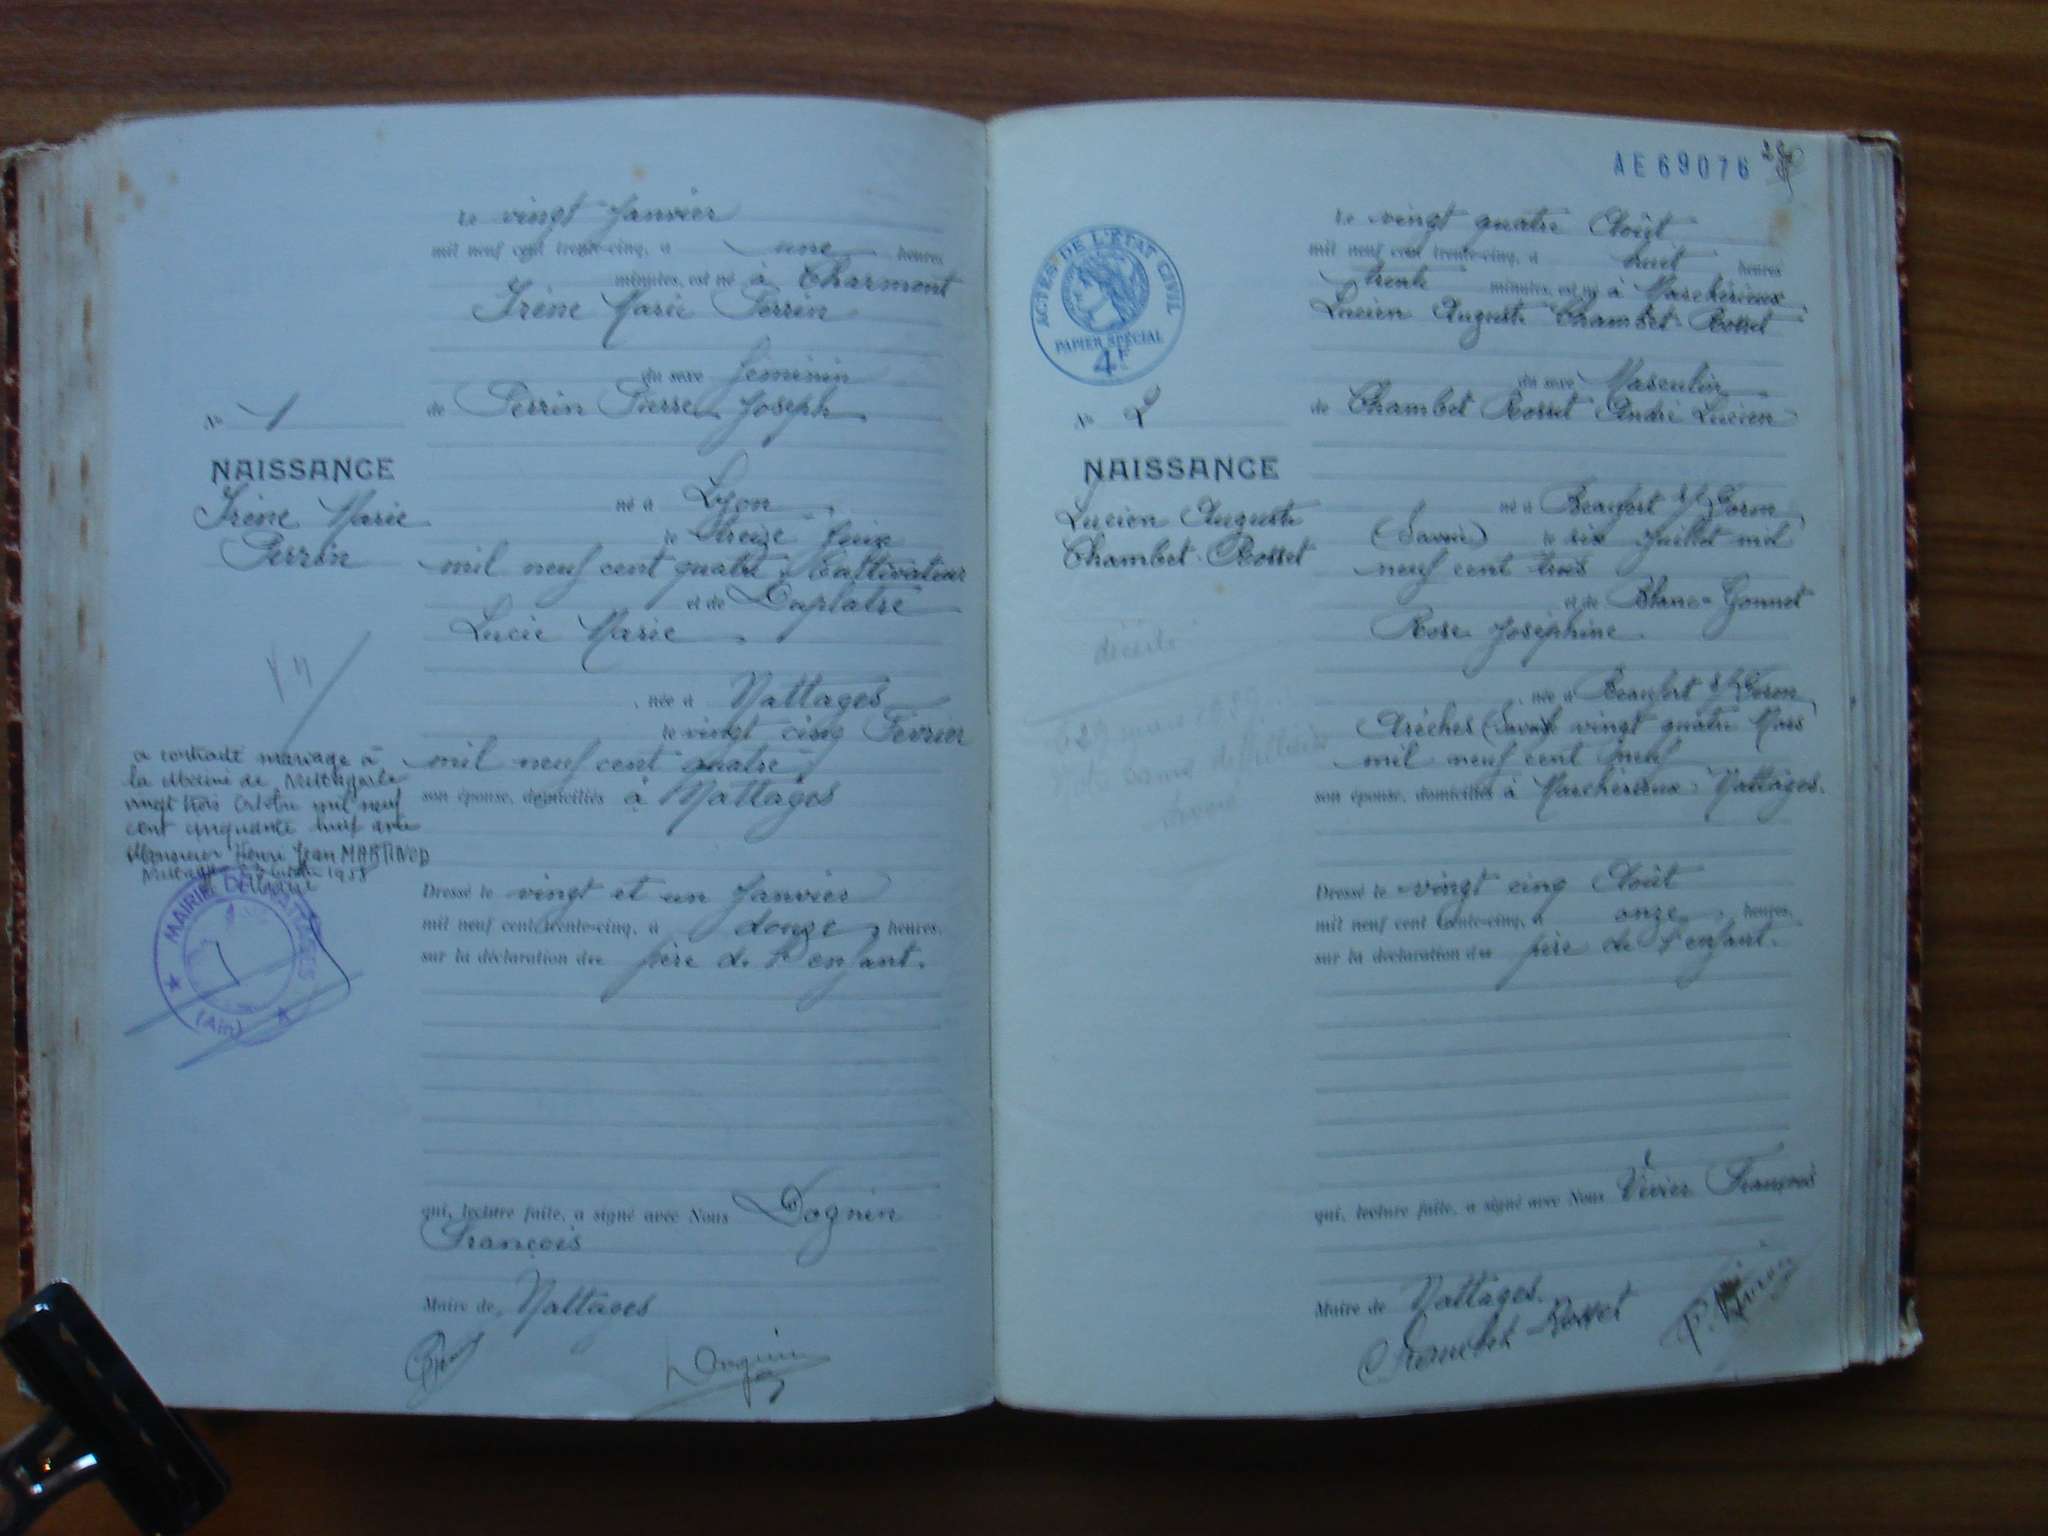 le vingt Janvier
mil neuf cent trente-cinq, à une heures
minutes, est né à Charmont
Irène Marie Perrin
du sexe féminin
de Perrin Pierre Joseph
N° 1
NAISSANCE
Irène Marie
Perrin
né à Lyon
le treize Juin
mil neuf cent quatre Cultivateur
et de Duplatre
Lucie Marie
née à Nattages
le vingt cinq Février
mil neuf cent quatre
son épouse, domiciliés à Nattages
a contracté mariage à
la Mairie de
vingt trois Octobre mil neuf
cent cinquante huit avec
Monsieur Henri Jean MARTINOD
1958
MAIRIE DE NATTAGES
(Ain)
Dressé le vingt et un Janvier
mil neuf cent trente-cinq, à douze heures,
sur la déclaration du père de l'enfant.
qui, lecture faite, a signé avec Nous Dognin
François
Maire de Nattages
Dognin
AE 69076
ACTES DE L'ÉTAT CIVIL
PAPIER SPÉCIAL
4F
le vingt quatre Août
mil neuf cent trente-cinq, à huit heures
trente minutes, est né à Marchérieux
Lucien Auguste Chambet-Rosset
du sexe Masculin
de Chambet Rosset André Lucien
N° 2
NAISSANCE
Lucien Auguste
Chambet-Rosset
né à Beaufort s/ Doron
(Savoie) le six Juillet mil
neuf cent trois
et de Blanc-Gonnet
Rose Joséphine
née à Beaufort s/ Doron
Arèches (Savoie) vingt quatre Mars
mil neuf cent neuf
son épouse, domiciliés à Marchérieux, Nattages.
décédé
Dressé le vingt cinq Août
mil neuf cent trente-cinq, à onze heures,
sur la déclaration du père de l'enfant.
qui, lecture faite, a signé avec Nous Vivier François
Maire de Nattages.
Chambet-Rosset